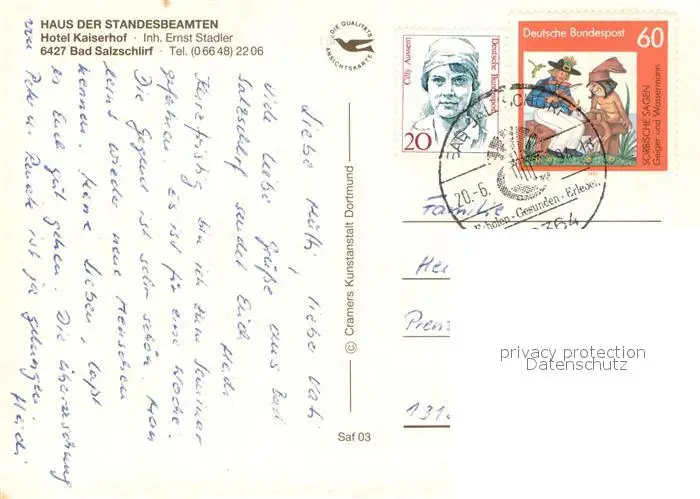 HAUS DER STANDESBEAMTEN
Hotel Kaiserhof · Inh. Ernst Stadler
6427 Bad Salzschlirf · Tel. (0 66 48) 22 06
DIE QUALITÄTS
ANSICHTSKARTE
Liebe Mutti, liebe Vati
Viele liebe Grüße aus Bad
Salzschlirf sendet Euch
Heidi
Kurzfristig bin ich zum Seminar
gefahren. Es ist für eine Woche.
Die Gegend ist sehr schön. Man
lernt wieder neue Menschen
kennen. Meine Lieben, laßt
es Euch gut gehen. Die Überraschung
von Peter u. ist ja gelungen.
Heidi
© Cramers Kunstanstalt Dortmund
Saf 03
Cilly Aussem
Deutsche Bundespost
20
Deutsche Bundespost
60
SORBISCHE SAGEN
Geiger und Wassermann
1991
BAD SALZSCHLIRF
20.-6.
-13
Erholen - Gesunden - Erleben
6364
Familie
He
Pren
131
privacy protection
Datenschutz